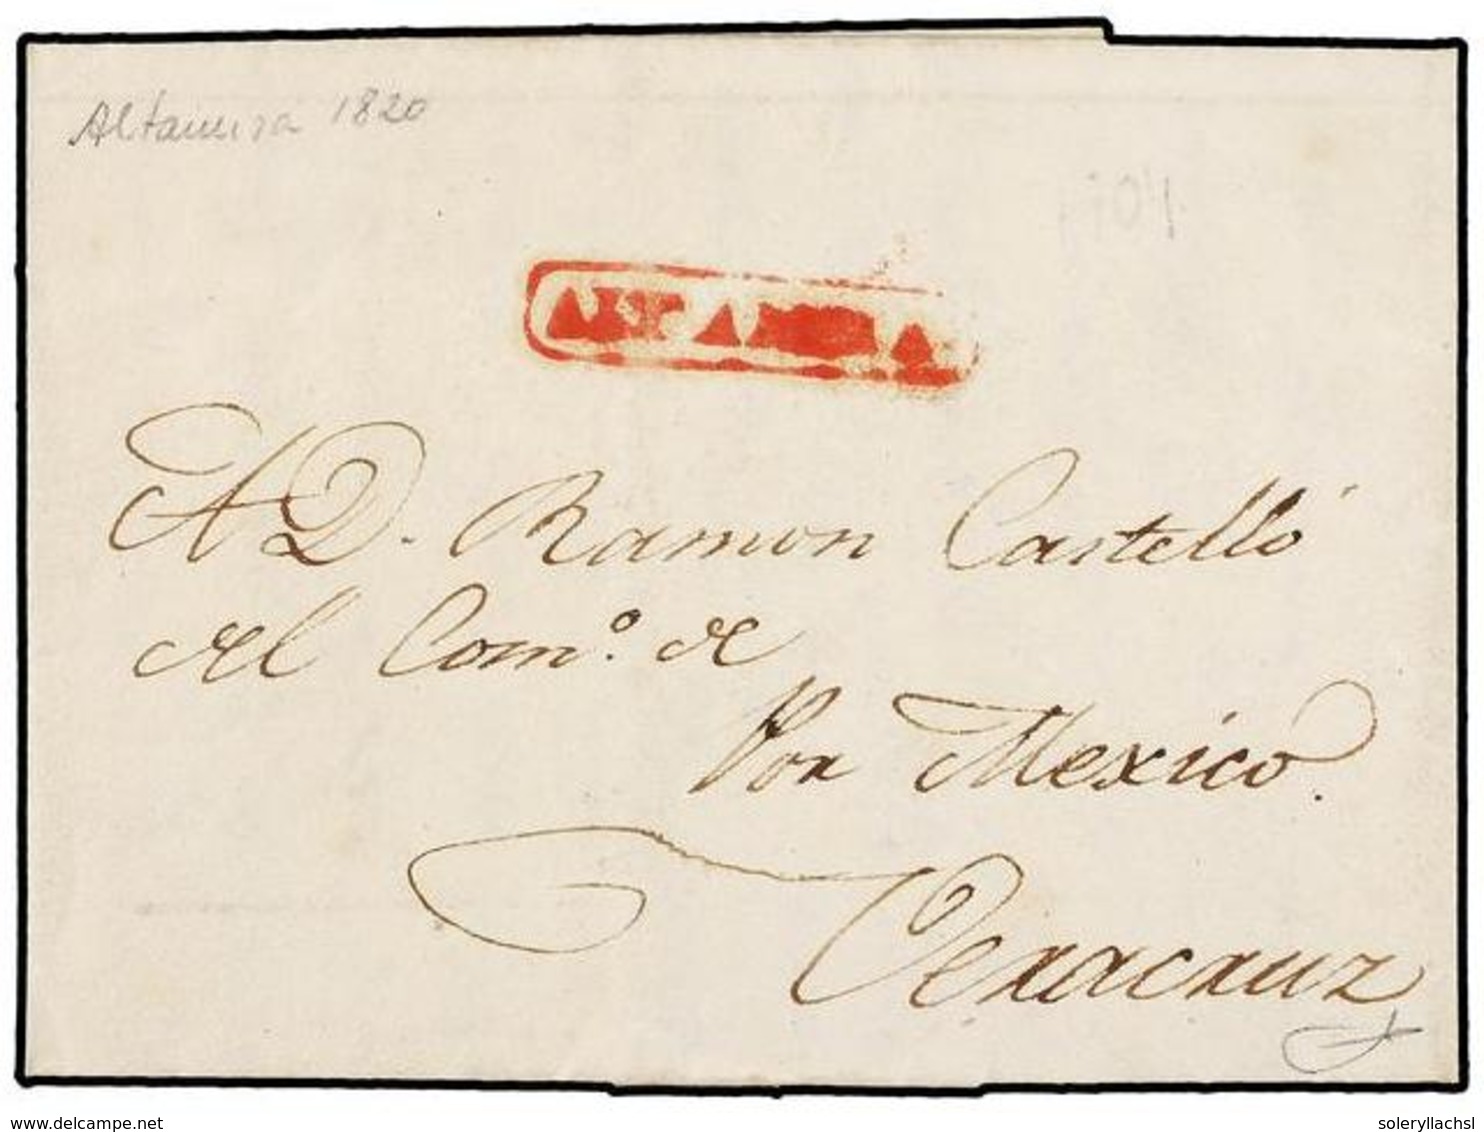 Altamira 1820
104
ALTAMIRA
A D. Ramon Castelló
del Com.º de
Por Mexico.
Veracruz
www.delcampe.net
soleryllachsl